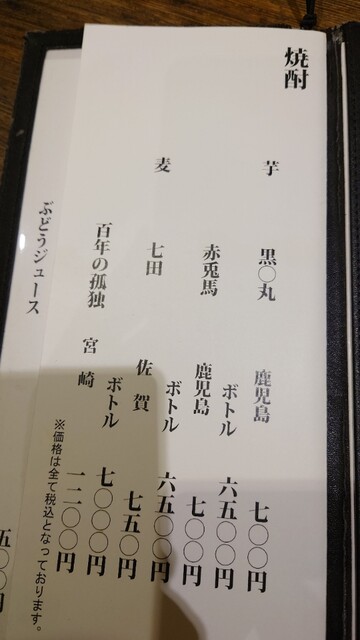 焼酎
芋 黒〇丸 鹿児島 七〇〇円
ボトル 六五〇〇円
赤兎馬 鹿児島 七〇〇円
ボトル 六五〇〇円
麦 七田 佐賀 七五〇円
ボトル 七〇〇〇円
百年の孤独 宮崎 一二〇〇円
※価格は全て税込となっております。
ぶどうジュース 五〇〇円